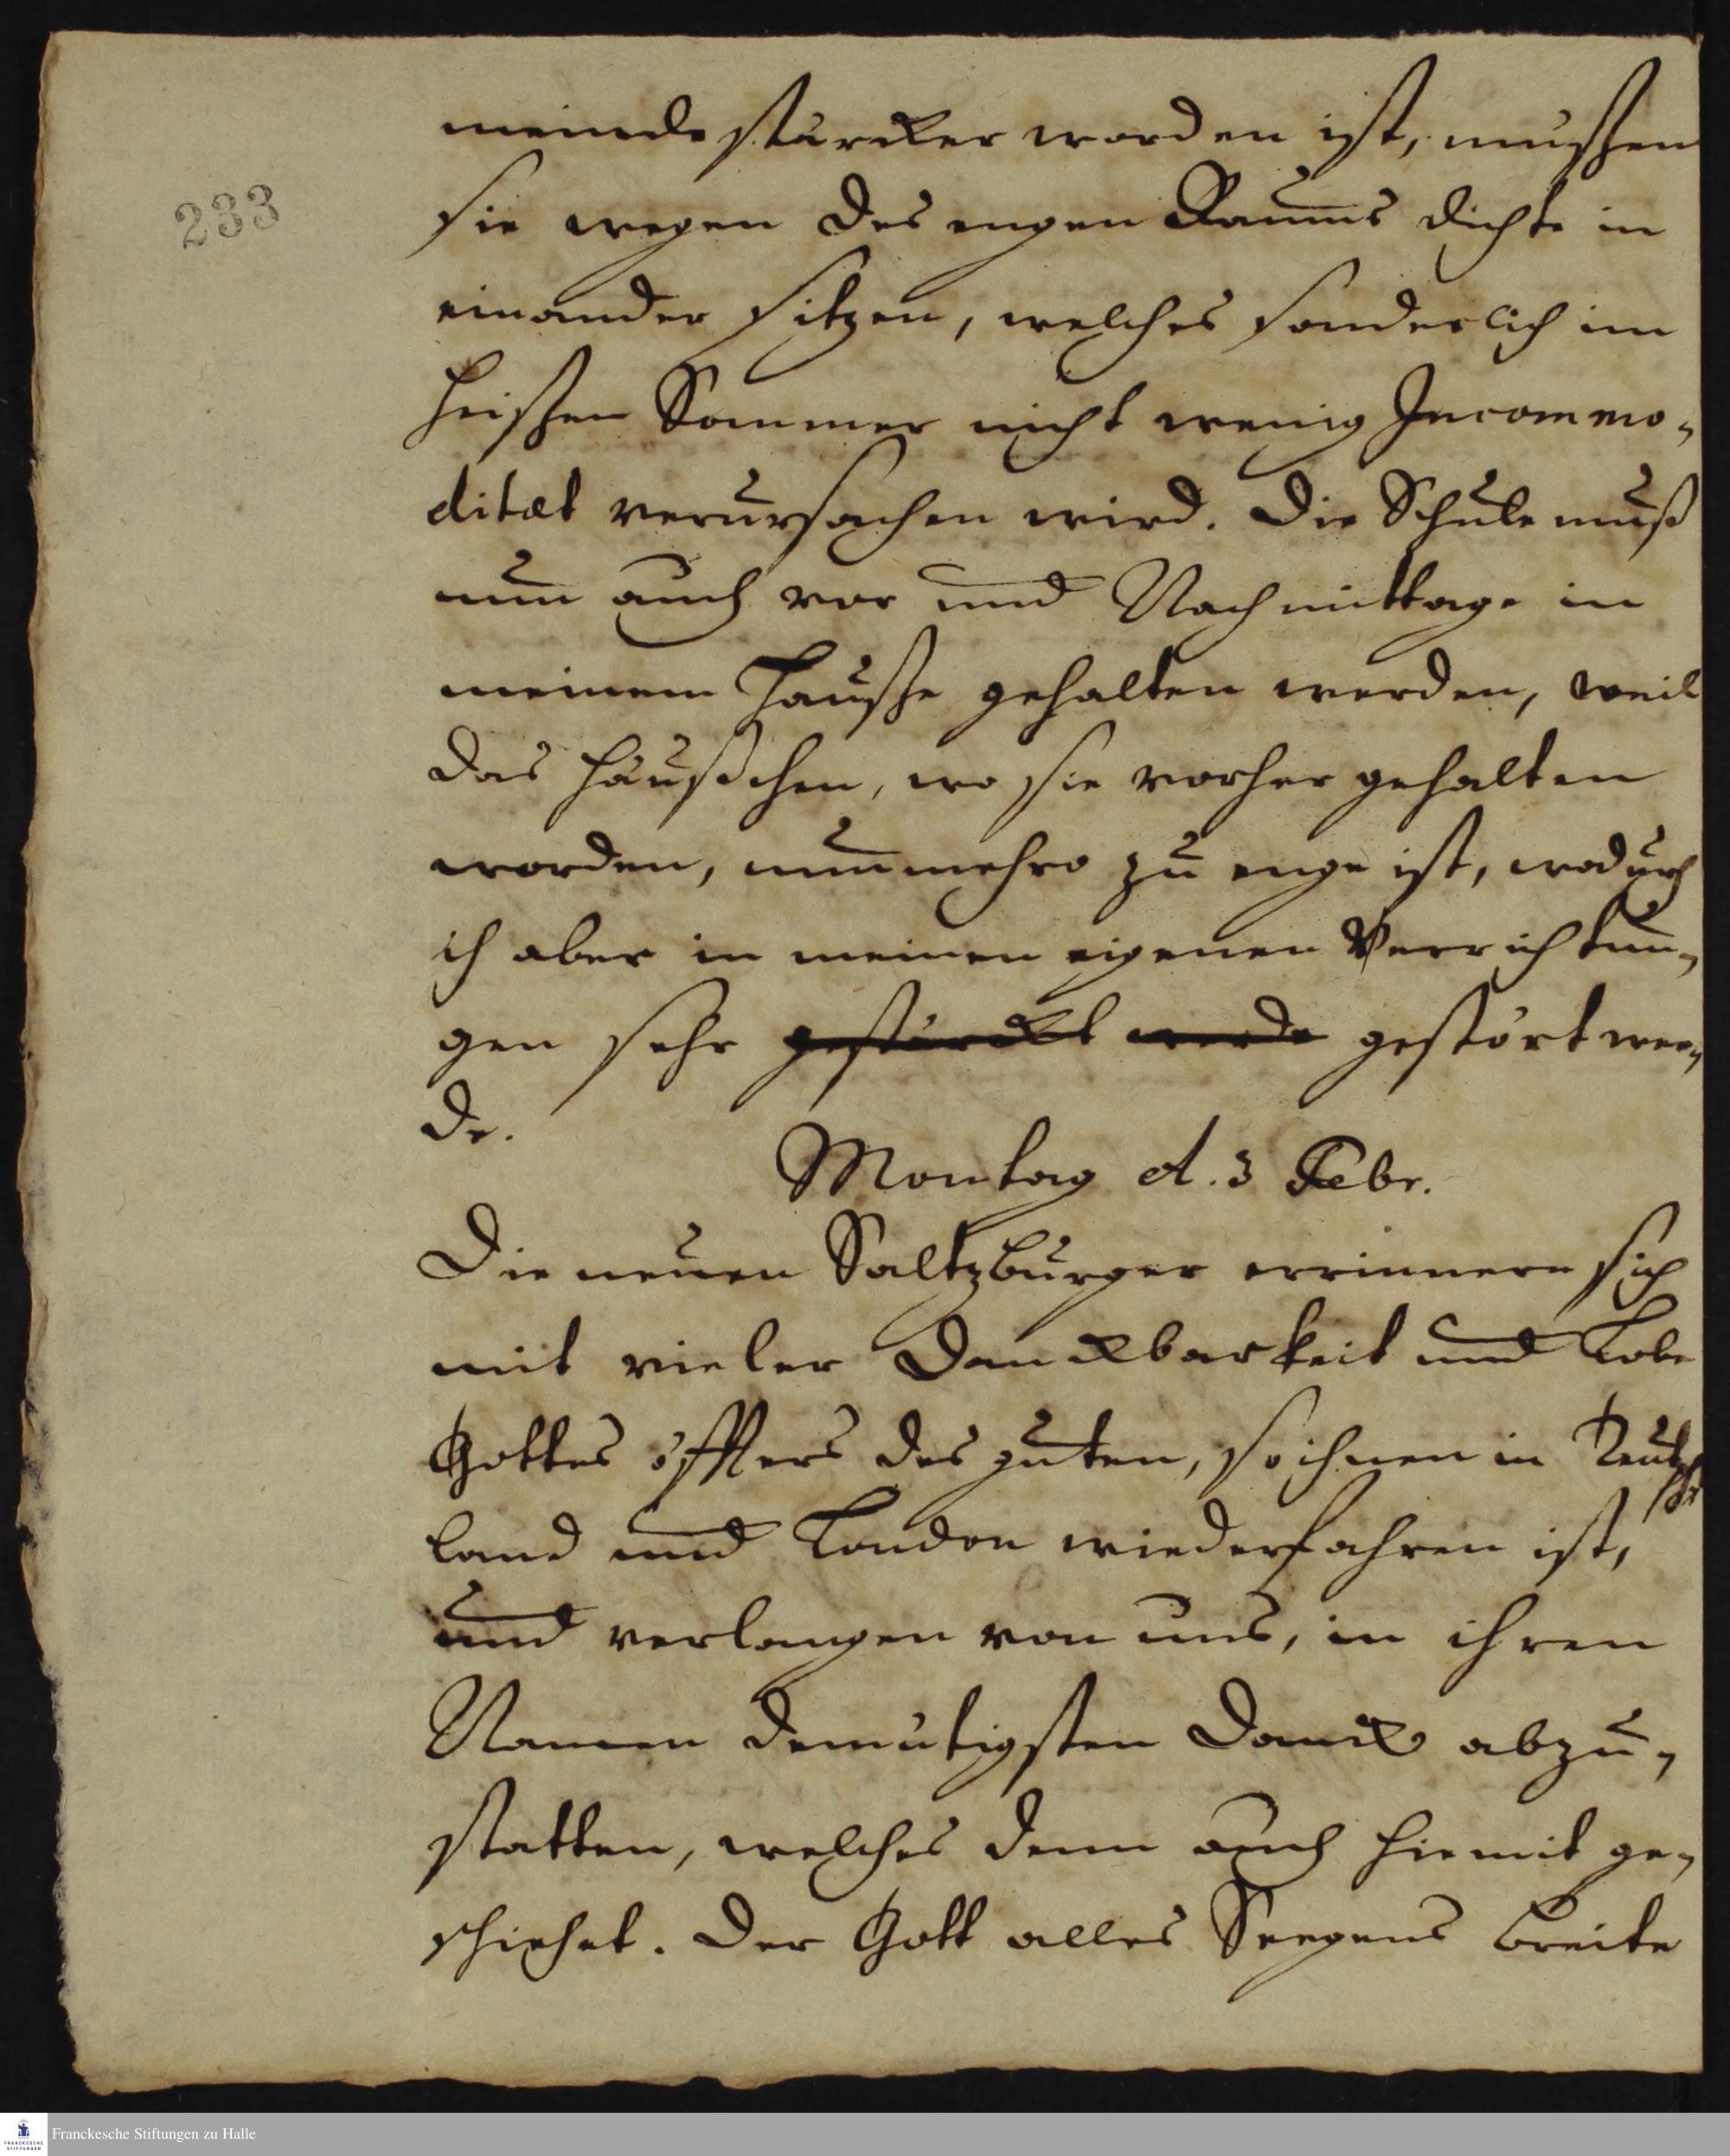 233
meinde stärcker worden ist, müßen
sie wegen des engen Raums dichte in
einander sitzen, welches sonderlich im
heißen Sommer nicht wenig Incommo-
ditæt verursachen wird. Die Schule muß
nun auch vor und Nachmittage in
meinem Hauße gehalten werden, weil
das Häußchen, wo sie vorher gehalten
worden, nunmehro zu enge ist, wodurch
ich aber in meinen eigenen Verrichtun-
gen sehr gestärckt werde gestört wer-
de.
Montag d. 3 Febr.
Die neuen Saltzburger errinnern sich
mit vieler Danckbarkeit und Lobe
Gottes öffters des guten, so ihnen in Teutsch
land und London wiederfahren ist,
und verlangen von uns, in ihren
Namen demütigsten Danck abzu-
statten, welches denn auch hiemit ge-
schiehet. Der Gott alles Seegens breite
Franckesche Stiftungen zu Halle